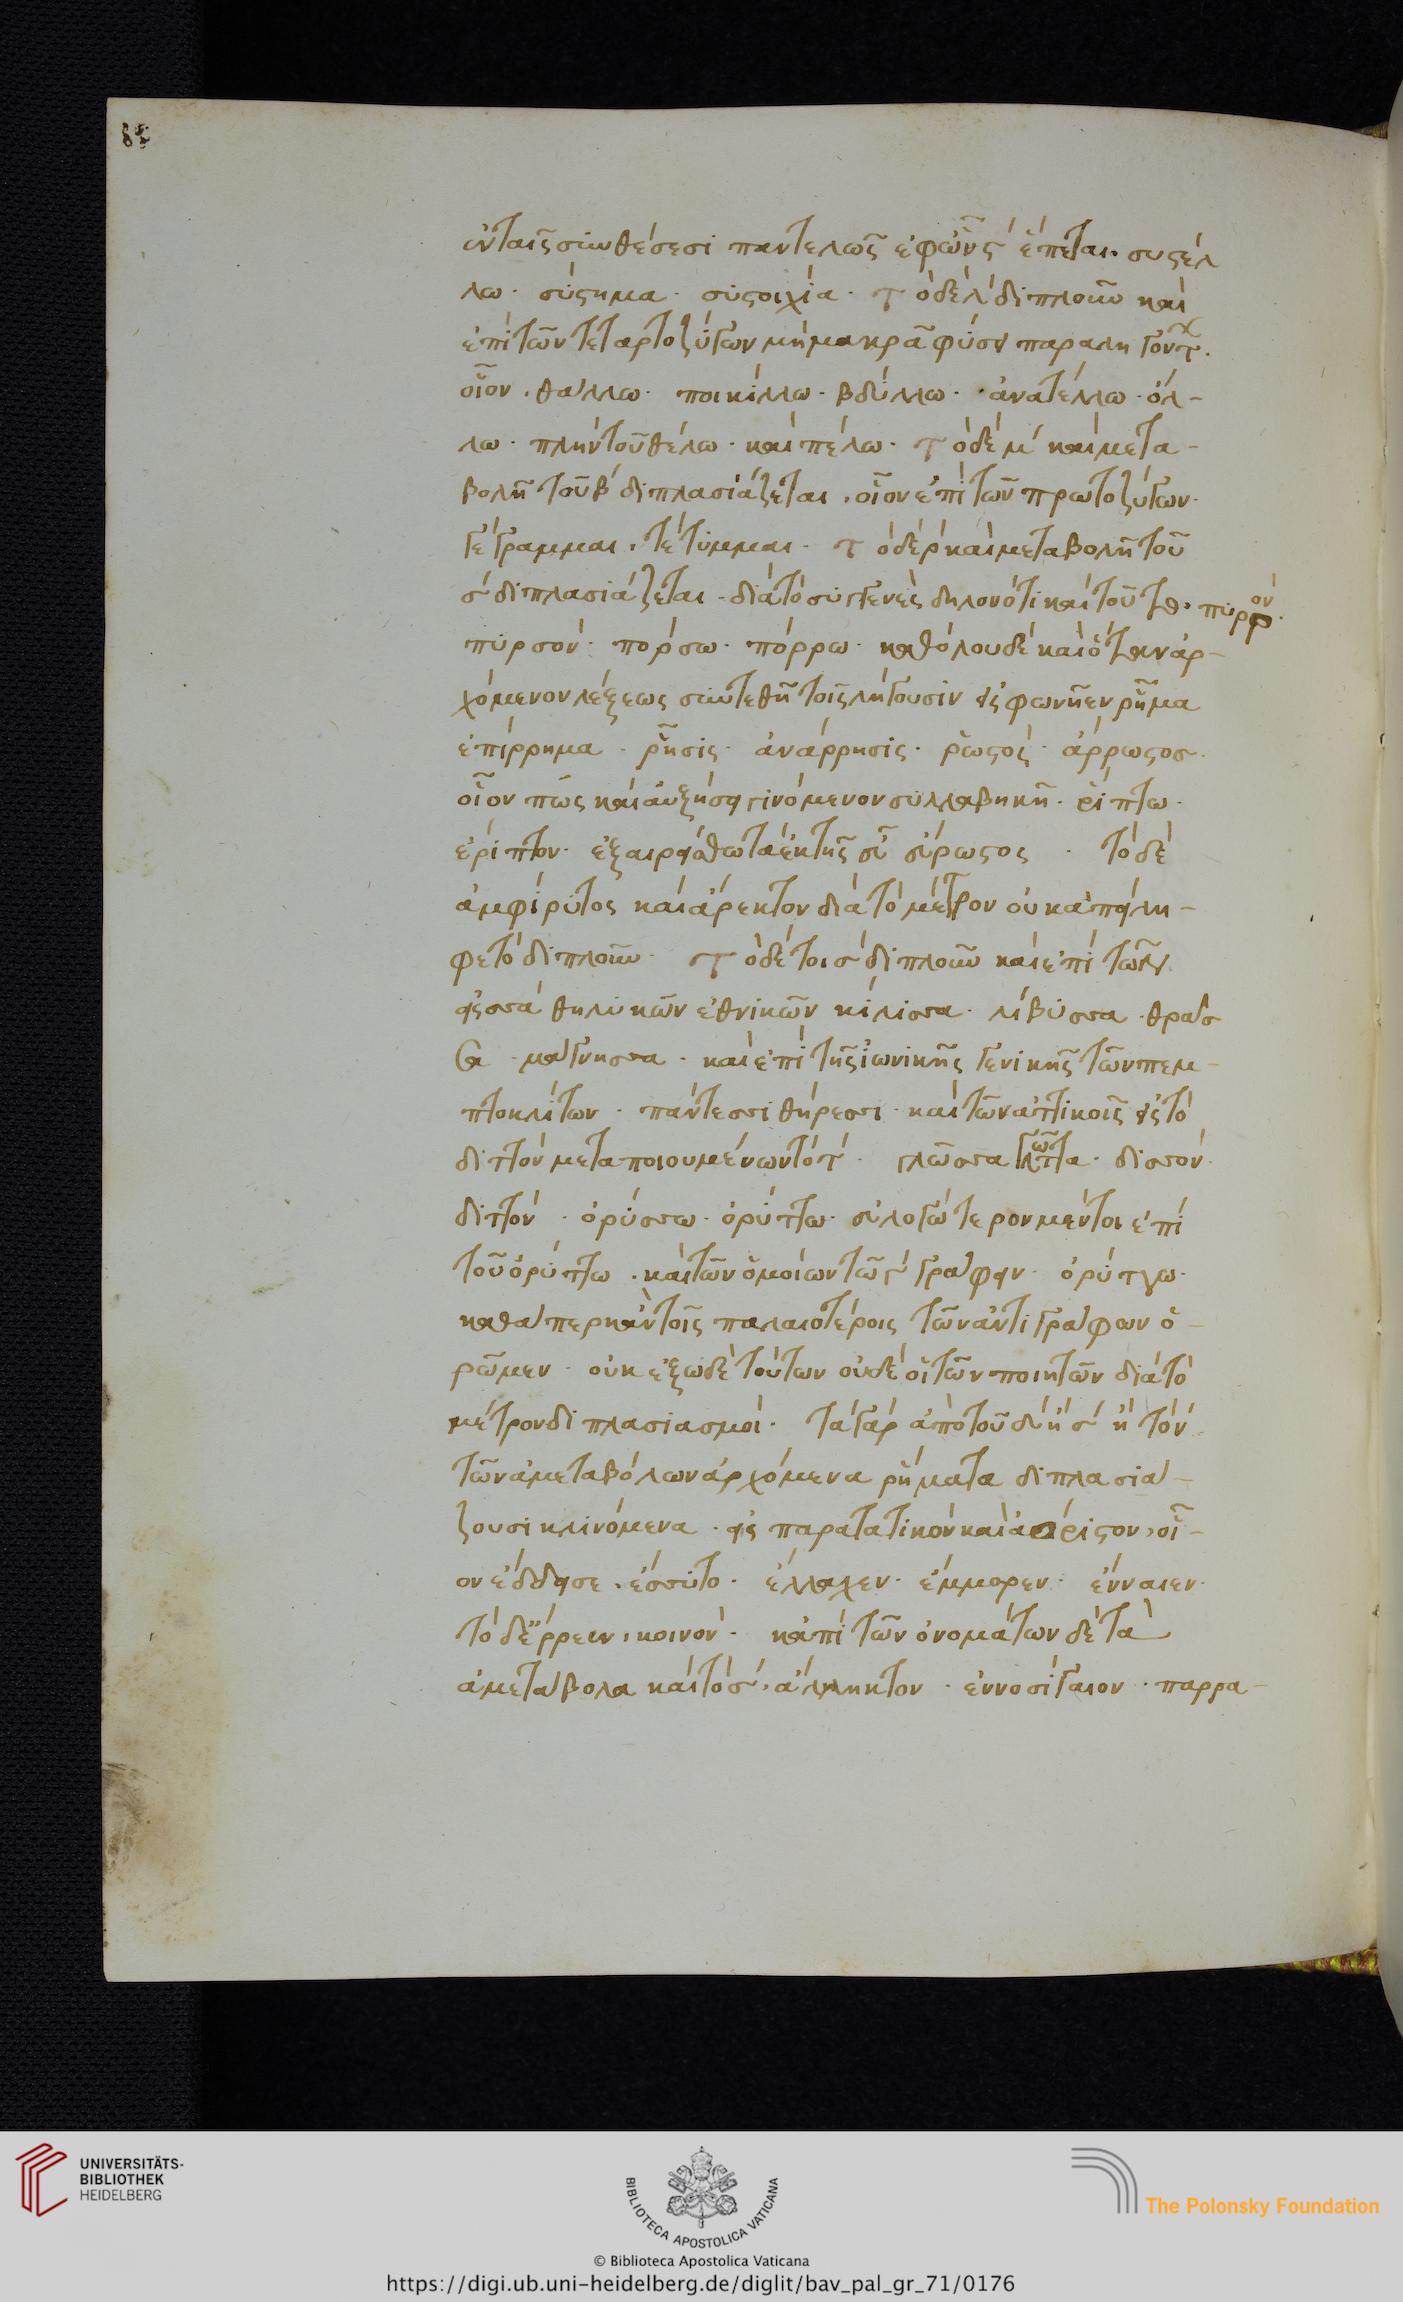 85
ἐν ταῖς συνθέσεσι παντελῶς ἐφ' ὧν σ ἕπεται. συστέλ
λω. σύστημα. συστοιχία. τὸ δὲ λ διπλοῦν καὶ
ἐπὶ τῶν τεταρτοζύγων μὴ μακρᾷ φύσει παραληγοντ.
οἷον. θάλλω. ποικίλλω. βδύλλω. ἀνατέλλω. ὀλ-
λω. πλὴν τοῦ θέλω. καὶ πέλω. τὸ δὲ μ καὶ μετα-
βολῇ τοῦ β διπλασιάζεται. οἷον ἐπὶ τῶν πρωτοζύγων.
γέγραμμαι. τέτυμμαι. τὸ δὲ ρ καὶ μεταβολῇ τοῦ
σ διπλασιάζεται. διὰ τὸ συγγενὲς δηλονότι καὶ τοῦτο. πυρρόν.
πυρσόν. πόρσω. πόρρω. καθόλου δὲ καὶ ὅταν ἀρ-
χόμενον λέξεως συντεθῇ τοῖς λήγουσιν εἰς φωνῆεν ῥῆμα
ἐπίρρημα. ῥῆσις. ἀνάρρησις. ῥωστός. ἄρρωστος.
οἷόν πως καὶ αὐξήσει γινόμενον συλλαβικῇ. ῥίπτω.
ἔριπτον. ἐξαιρείσθω τὰ ἐκ τῆς εὖ εὔρωστος. τὸ δὲ
ἀμφίρυτος καὶ ἄρεκτον διὰ τὸ μέτρον οὐκ ἀπείλη-
φε τὸ διπλοῦν. τὸ δέ τοι σ διπλοῦν καὶ ἐπὶ τῶν
εἰς σσα θηλυκῶν ἐθνικῶν κίλισσα. λίβυσσα. θρᾶσ
σα. μάγνησσα. καὶ ἐπὶ τῆς ἰωνικῆς γενικῆς τῶν πεμ-
πτοκλίτων. πάντεσσι θήρεσσι. καὶ τῶν ἀττικοῖς εἰς τὸ
διττὸν μεταποιουμένων τὸ τ. γλῶσσα γλῶττα. δισσόν.
διττόν. ὀρύσσω. ὀρύττω. εὐλογώτερον μέντοι ἐπὶ
τοῦ ὀρύττω. καὶ τῶν ὁμοίων τῷ γράφειν. ὀρύτγω.
καθάπερ κἀν τοῖς παλαιοτέροις τῶν ἀντιγράφων ὁ-
ρῶμεν. οὐκ ἔξω δὲ τούτων οὐδὲ οἱ τῶν ποιητῶν διὰ τὸ
μέτρον διπλασιασμοί. τὰ γὰρ ἀπὸ τοῦ δ ἢ σ ἢ τὸν
τῶν ἀμεταβόλων ἀρχόμενα ῥήματα διπλασιά-
ζουσι κλινόμενα. εἰς παρατατικὸν καὶ ἀόριστον, οἷ-
ον ἔδδεισε. ἔσσυτο. ἔλλαχεν. ἔμμορεν. ἔνναιεν.
τὸ δὲ ἔρρεεν, κοινόν. κἀπὶ τῶν ὀνομάτων δὲ τὰ
ἀμετάβολα καὶ τὸ σ. ἄλληκτον. ἐννοσίγαιον. παρρα-
UNIVERSITÄTS-
BIBLIOTHEK
HEIDELBERG
BIBLIOTECA APOSTOLICA VATICANA
The Polonsky Foundation
© Biblioteca Apostolica Vaticana
https://digi.ub.uni-heidelberg.de/diglit/bav_pal_gr_71/0176